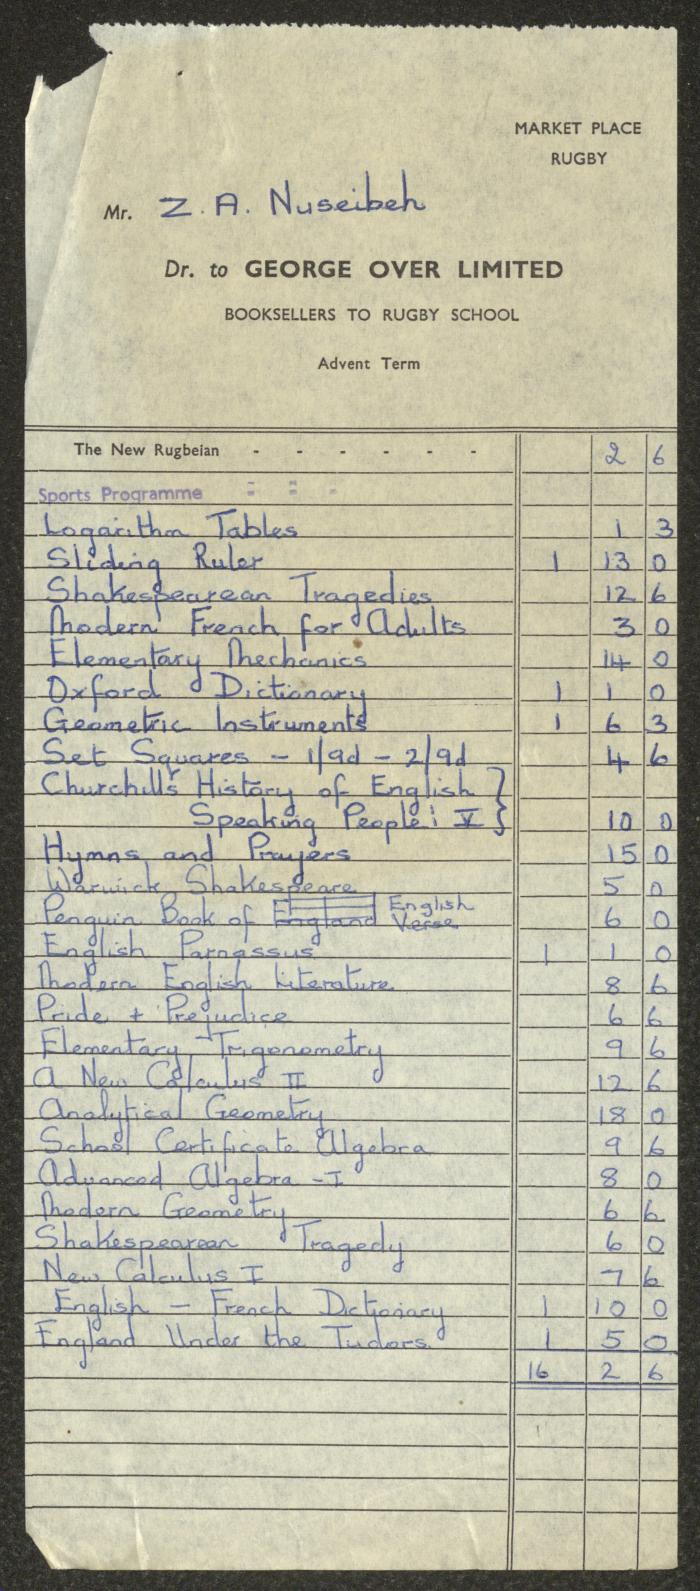 MARKET PLACE
RUGBY
Mr. Z. A. Nuseibeh
Dr. to GEORGE OVER LIMITED
BOOKSELLERS TO RUGBY SCHOOL
Advent Term
The New Rugbeian - - - - - - 2 6
Sports Programme - - -
Logarithm Tables 1 3
Sliding Ruler 1 13 0
Shakespearean Tragedies 12 6
Modern French for Adults 3 0
Elementary Mechanics 14 0
Oxford Dictionary 1 1 0
Geometric Instruments 1 6 3
Set Squares - 1/9d - 2/9d 4 6
Churchill's History of English
Speaking People: V 10 0
Hymns and Prayers 15 0
Warwick Shakespeare 5 0
Penguin Book of England English Verse 6 0
English Parnassus 1 1 0
Modern English Literature 8 6
Pride + Prejudice 6 6
Elementary Trigonometry 9 6
A New Calculus II 12 6
Analytical Geometry 18 0
School Certificate Algebra 9 6
Advanced Algebra - I 8 0
Modern Geometry 6 6
Shakespearean Tragedy 6 0
New Calculus I 7 6
English - French Dictionary 1 10 0
England Under the Tudors. 1 5 0
16 2 6